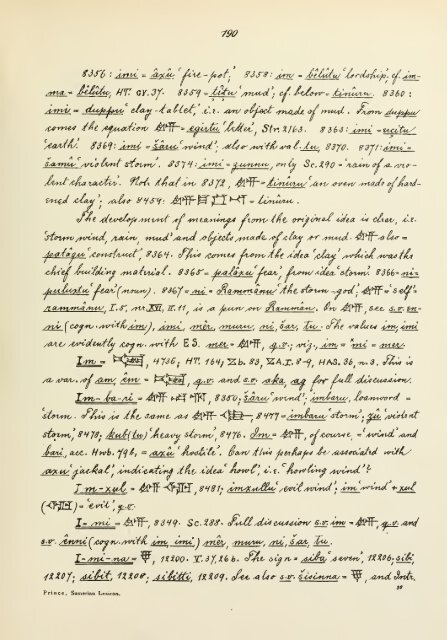 190
8356: imi = axû 'fire-pot,' 8358: im = bêlûtu 'lordship', cf. im-
ma = bêlûtu, HT. CV. 37. 8359 = țîțu 'mud', cf. below = tinûru. 8360:
imi = duppu 'clay-tablet,' i.e. an object made of mud. From duppu
comes the equation = egirtu 'letter', Str. 2163. 8363: imi = erçitu
'earth'. 8369: imi = šâru 'wind', also with val. tu, 8370. 8371: imi =
šamû 'violent storm'. 8374: imi = zunnu, only Sc. 290 = 'rain of a vio-
lent character'. Note that in 8372, = tinûru 'an oven made of hard-
ened clay'; also 8459: = tinûru.
The development of meanings from the original idea is clear, i.e.
'storm wind, rain, mud' and objects made of clay or mud. also =
patâqu 'construct', 8364. This comes from the idea 'clay' which was the
chief building material. 8365 = palâxu 'fear', from idea 'storm'. 8366 = ni =
puluxtu 'fear' (noun). 8367 = ni = Rammânu 'the storm-god', = 'self' =
rammânu, I. 5, nr. XVI, II. 11, is a pun on Rammân. On, see s.v. en-
ni (cogn. with im), imi, mêr, muru, ni, šar, tu. The values im, imi
are evidently cogn. with ES. mer =, q.v.; viz., im = mi = mer.
Im =, 4736; HT. 164; Zb. 83, ZA. I. 8-9, HAS. 36, n. 3. This is
a var. of am, em =, q.v. and s.v. aka, ag for full discussion.
Im-ba-ri =, 8350; šâru 'wind'; imbaru, loanword =
'storm. This is the same as, 8477 = imbaru 'storm'; zû 'violent
storm,' 8478; kub(tu) 'heavy storm', 8476. Im =, of course, = 'wind' and
bari, acc. Hwb. 79b, = axû 'hostile'. Can this perhaps be associated with
axu 'jackal', indicating the idea 'howl', i.e. 'howling wind'?
Im-xul =, 8481; imxullu 'evil wind'; im 'wind' + xul
() = 'evil', q.v.
I-mi =, 8349. Sc. 288. Full discussion s.v. im =, q.v. and
s.v. ênni (cogn. with im, imi) mêr, muru, ni, šar, tu.
I-mi-na =, 12200. V. 37, 26b. The sign = siba 'seven', 12206; sibi,
12207; sibit, 12208; sibitti, 12209. See also s.v. šisinna =, and Intr.
Prince, Sumerian Lexicon.